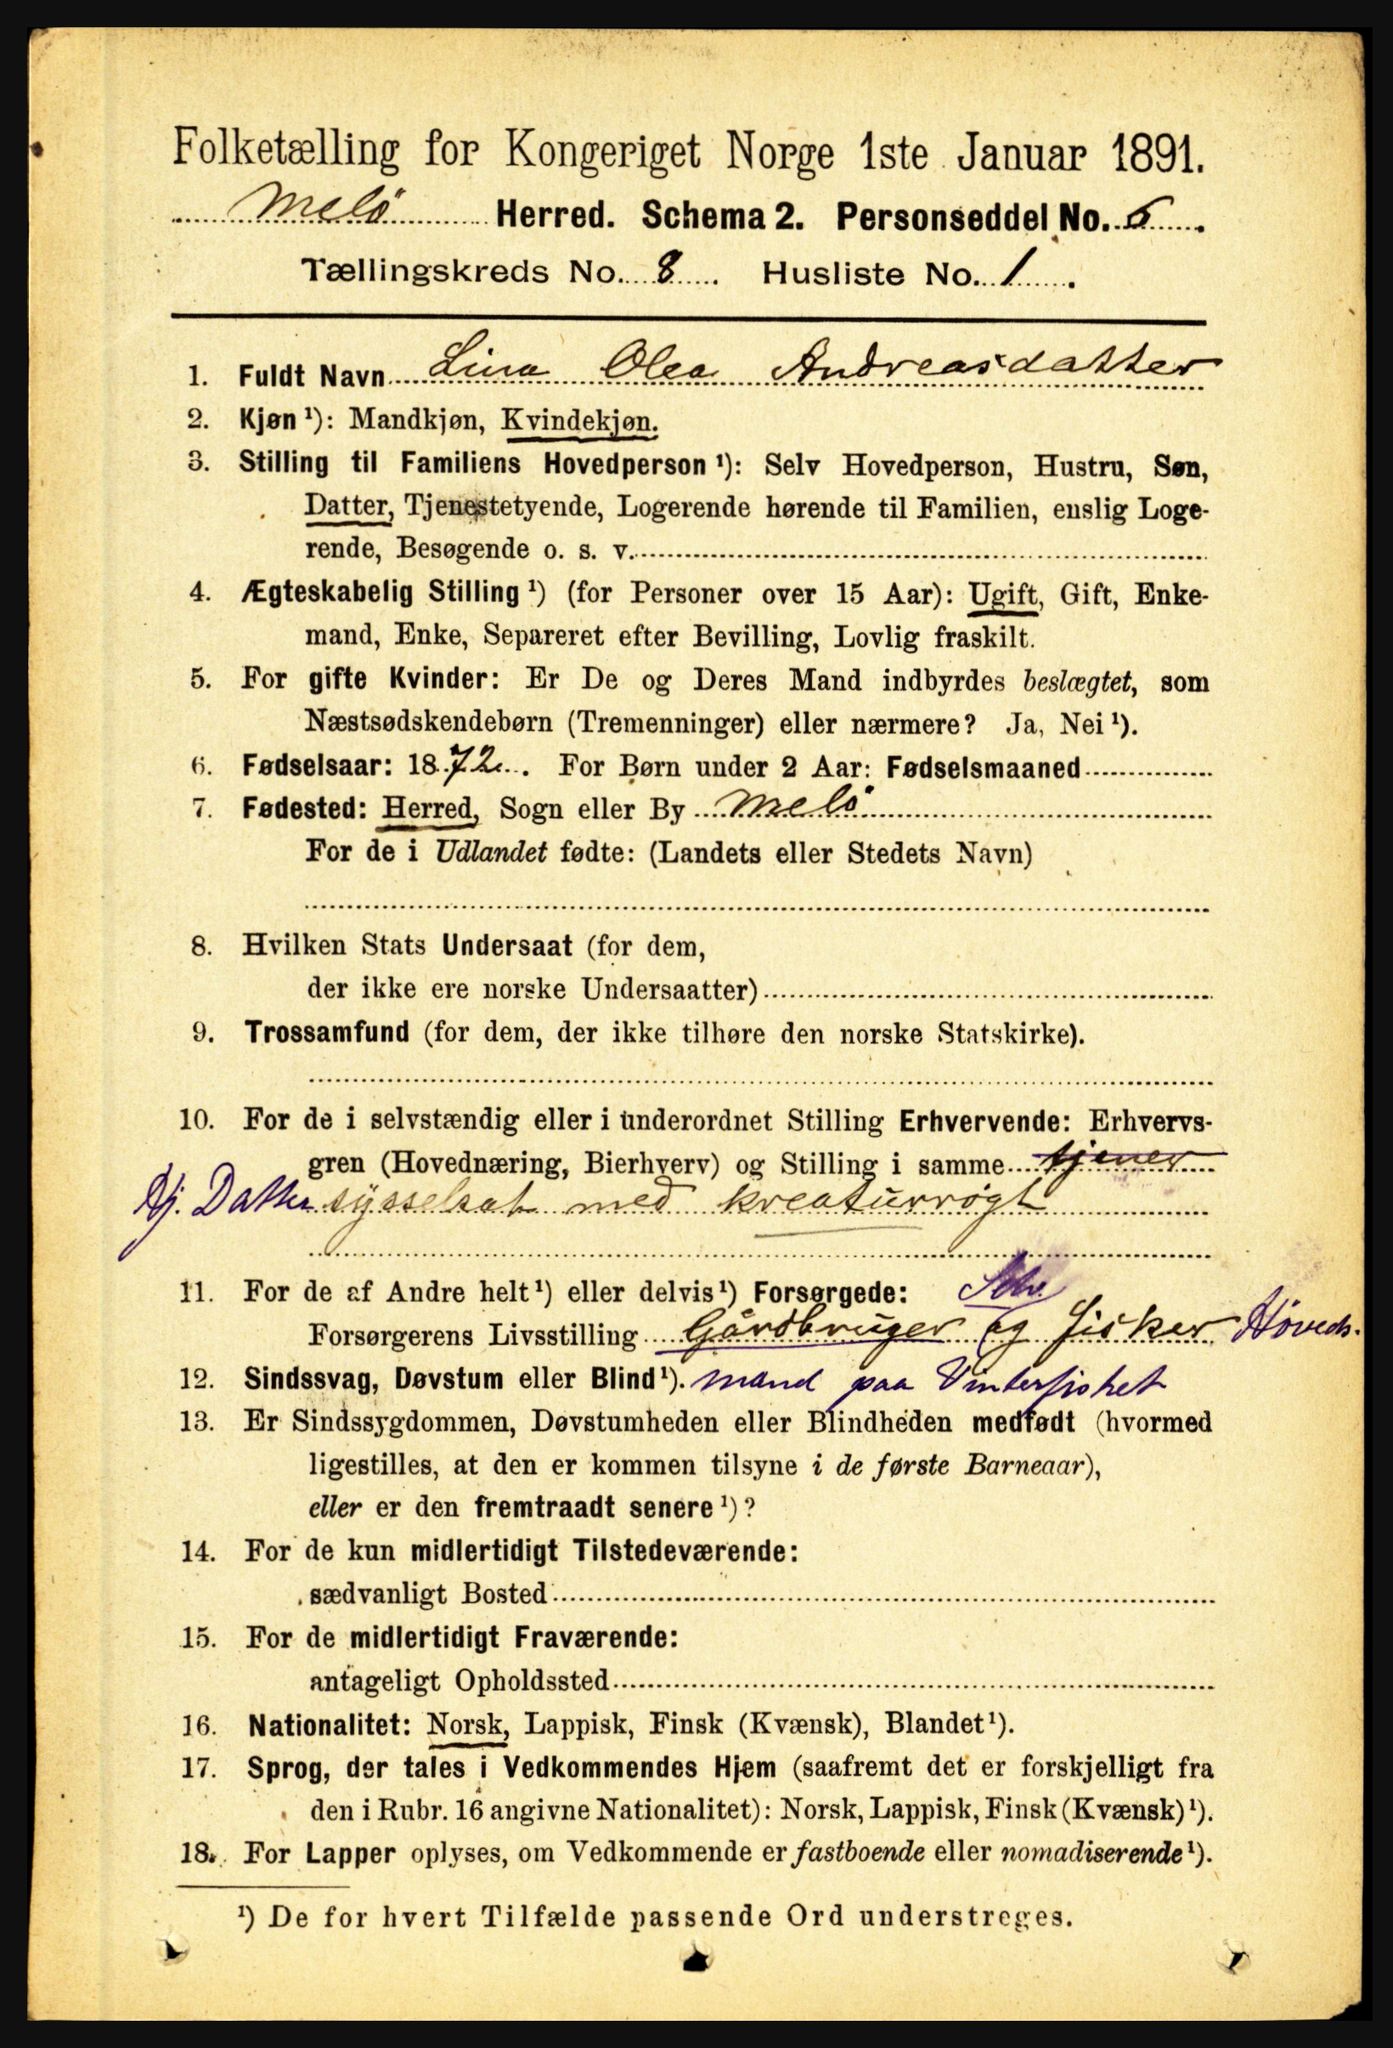 Folketælling for Kongeriget Norge 1ste Januar 1891.
Melö Herred. Schema 2. Personseddel No. 6.
Tællingskreds No. 8. Husliste No. 1.
1. Fuldt Navn Lina Olea Andreasdatter
2. Kjøn ¹): Mandkjøn, Kvindekjøn.
3. Stilling til Familiens Hovedperson ¹): Selv Hovedperson, Hustru, Søn,
Datter, Tjenestetyende, Logerende hørende til Familien, enslig Loge-
rende, Besøgende o. s. v.
4. Ægteskabelig Stilling ¹) (for Personer over 15 Aar): Ugift, Gift, Enke-
mand, Enke, Separeret efter Bevilling, Lovlig fraskilt.
5. For gifte Kvinder: Er De og Deres Mand indbyrdes beslægtet, som
Næstsødskendebørn (Tremenninger) eller nærmere? Ja, Nei ¹).
6. Fødselsaar: 1872. For Børn under 2 Aar: Fødselsmaaned
7. Fødested: Herred, Sogn eller By Melö
For de i Udlandet fødte: (Landets eller Stedets Navn)
8. Hvilken Stats Undersaat (for dem,
der ikke ere norske Undersaatter)
9. Trossamfund (for dem, der ikke tilhøre den norske Statskirke).
10. For de i selvstændig eller i underordnet Stilling Erhvervende: Erhvervs-
gren (Hovednæring, Bierhverv) og Stilling i samme tjener
Hj. Datter sysselsat med kreaturrøgt
11. For de af Andre helt ¹) eller delvis ¹) Forsørgede: Selv.
Forsørgerens Livsstilling Gårdbruger og fisker Höveds-
12. Sindssvag, Døvstum eller Blind ¹). mand paa Vinterfisket
13. Er Sindssygdommen, Døvstumheden eller Blindheden medfødt (hvormed
ligestilles, at den er kommen tilsyne i de første Barneaar),
eller er den fremtraadt senere ¹)?
14. For de kun midlertidigt Tilstedeværende:
sædvanligt Bosted
15. For de midlertidigt Fraværende:
antageligt Opholdssted
16. Nationalitet: Norsk, Lappisk, Finsk (Kvænsk), Blandet ¹).
17. Sprog, der tales i Vedkommendes Hjem (saafremt det er forskjelligt fra
den i Rubr. 16 angivne Nationalitet): Norsk, Lappisk, Finsk (Kvænsk) ¹).
18. For Lapper oplyses, om Vedkommende er fastboende eller nomadiserende ¹).
¹) De for hvert Tilfælde passende Ord understreges.